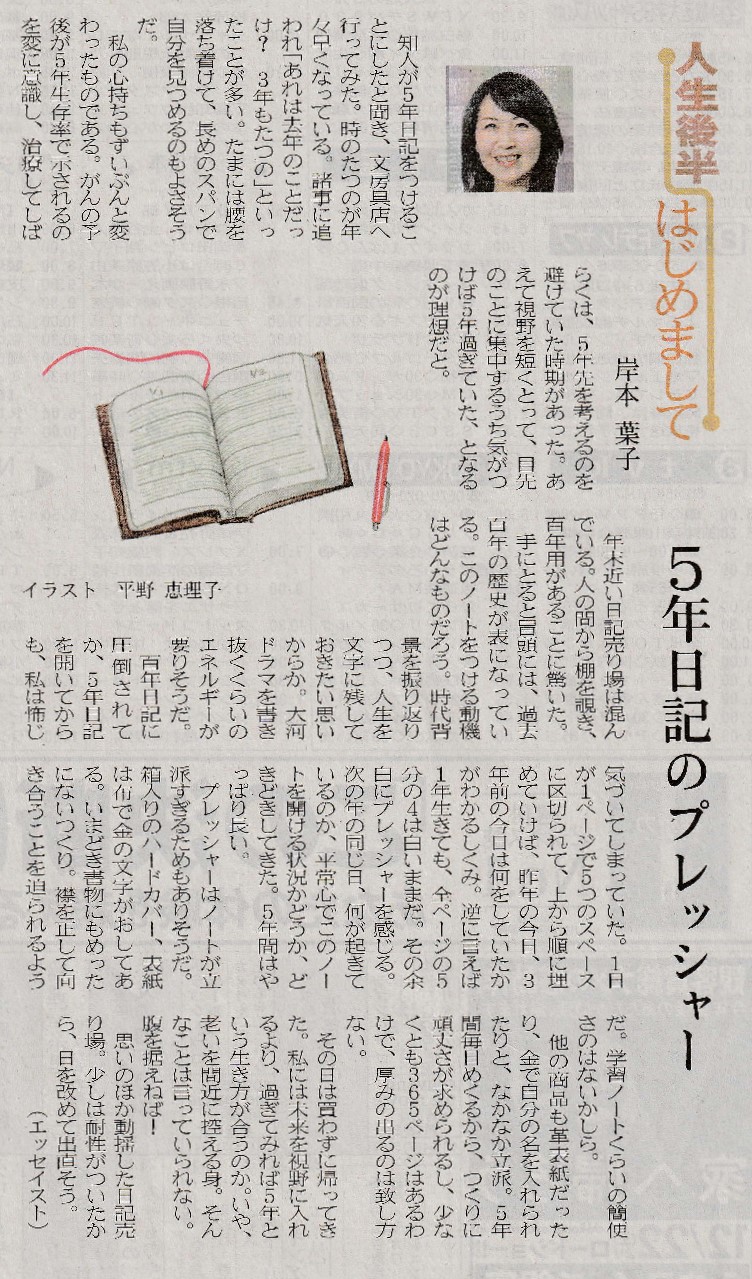 人生後半
はじめまして
岸本 葉子
5年日記のプレッシャー
知人が5年日記をつけるこ
とにしたと聞き、文房具店へ
行ってみた。時のたつのが年
々早くなっている。諸事に追
われ「あれは去年のことだっ
け? 3年もたつの」といっ
たことが多い。たまには腰を
落ち着けて、長めのスパンで
自分を見つめるのもよさそう
だ。
私の心持ちもずいぶんと変
わったものである。がんの予
後が5年生存率で示されるの
を変に意識し、治療してしば
らくは、5年先を考えるのを
避けていた時期があった。あ
えて視野を短くとって、目先
のことに集中するうち気がつ
けば5年過ぎていた、となる
のが理想だと。
年末近い日記売り場は混ん
でいる。人の間から棚を覗き、
百年用があることに驚いた。
手にとると冒頭には、過去
百年の歴史が表になってい
る。このノートをつける動機
はどんなものだろう。時代背
景を振り返り
つつ、人生を
文字に残して
おきたい思い
からか。大河
ドラマを書き
抜くくらいの
エネルギーが
要りそうだ。
百年日記に
圧倒されて
か、5年日記
を開いてから
も、私は怖じ
気づいてしまっていた。1日
が1ページで5つのスペース
に区切られて、上から順に埋
めていけば、昨年の今日、3
年前の今日は何をしていたか
がわかるしくみ。逆に言えば
1年生きても、全ページの5
分の4は白いままだ。その余
白にプレッシャーを感じる。
次の年の同じ日、何が起きて
いるのか、平常心でこのノー
トを開ける状況かどうか、ど
きどきしてきた。5年間はや
っぱり長い。
プレッシャーはノートが立
派すぎるためもありそうだ。
箱入りのハードカバー、表紙
は布で金の文字がおしてあ
る。いまどき書物にもめった
にないつくり。襟を正して向
き合うことを迫られるよう
だ。学習ノートくらいの簡便
さのはないかしら。
他の商品も革表紙だった
り、金で自分の名を入れられ
たりと、なかなか立派。5年
間毎日めくるから、つくりに
頑丈さが求められるし、少な
くとも365ページはあるわ
けで、厚みの出るのは致し方
ない。
その日は買わずに帰ってき
た。私には未来を視野に入れ
るより、過ぎてみれば5年と
いう生き方が合うのか。いや、
老いを間近に控える身。そん
なことは言っていられない。
腹を据えねば!
思いのほか動揺した日記売
り場。少しは耐性がついたか
ら、日を改めて出直そう。
(エッセイスト)
イラスト 平野 恵理子